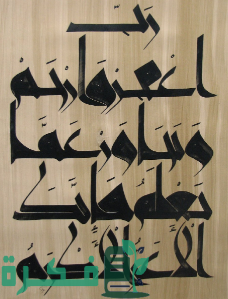 رب
اغفر وارحم
وتجاوز عما
تعلم فإنك
الأعز الأكرم
فكرة